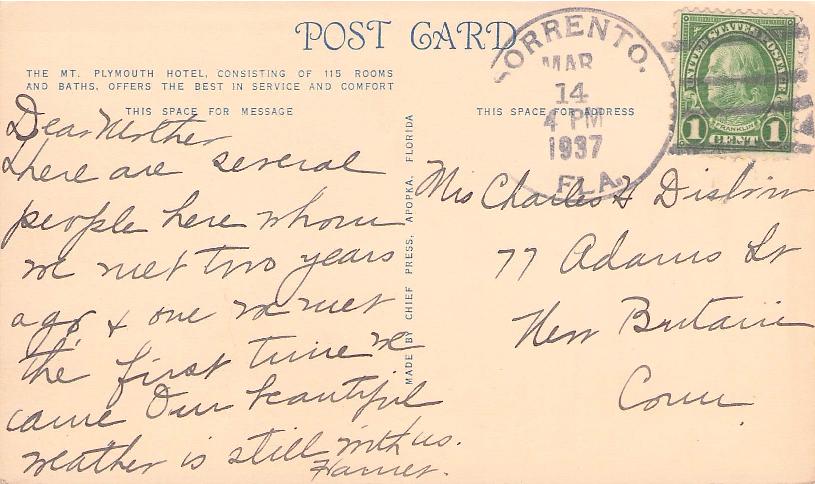 POST CARD
THE MT. PLYMOUTH HOTEL, CONSISTING OF 115 ROOMS
AND BATHS, OFFERS THE BEST IN SERVICE AND COMFORT
THIS SPACE FOR MESSAGE
Dear Mother
There are several
people here whom
we met two years
ago & one we met
the first time we
came Our beautiful
weather is still with us.
Harriet.
MADE BY CHIEF PRESS, APOPKA, FLORIDA
THIS SPACE FOR ADDRESS
SORRENTO,
MAR
14
4 PM
1937
FLA.
UNITED STATES POSTAGE
FRANKLIN
1 CENT 1
Mrs Charles H
77 Adams St
New Britain
Conn.